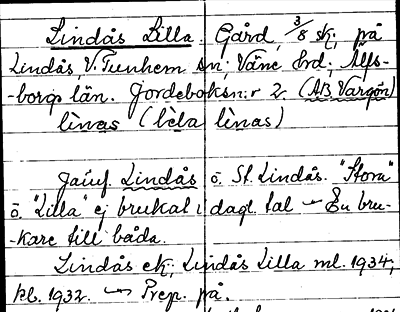 Lindås Lilla. Gård, 3/8 sk; på
Lindås, V. Tunhem sn; Väne hrd; Älfs-
-borgs län. Jordeboksn:r 2. (AB Vargön)
lìnas (lèla lìnas)
Jämf. Lindås o. St. Lindås. "Stora"
o. "Lilla" ej brukal i dagl. tal – En bru-
-kare till båda.
Lindås ek; Lindås Lilla ml. 1934;
kl. 1932. – Prep. på.